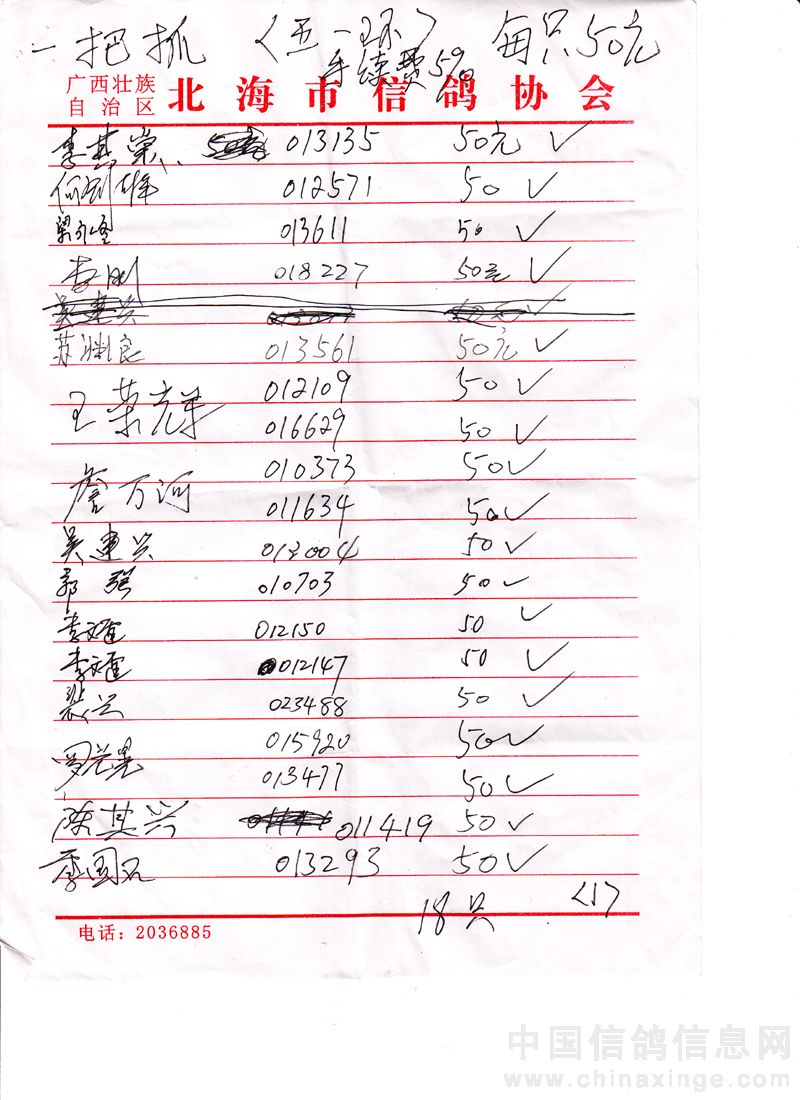 一把抓 〈五一环〉 每只50元
手续费5%
广西壮族自治区 北海市信鸽协会
李其崇 013135 50元 ✓
何剑雄 012571 50 ✓
梁永峰 013611 50 ✓
李刚 018227 50元 ✓
吴建兴
苏渊良 013561 50元 ✓
王荣光华 012109 50 ✓
016629 50 ✓
詹万河 010373 50 ✓
011634 50 ✓
吴建兴 013004 50 ✓
郭强 010703 50 ✓
李文雄 012150 50 ✓
李文雄 012147 50 ✓
裴兴 023488 50 ✓
罗光晃 015920 50 ✓
013477 50 ✓
陈其兴 011419 50 ✓
季国石 013293 50 ✓
18只 〈1〉
电话：2036885
中国信鸽信息网
www.chinaxinge.com